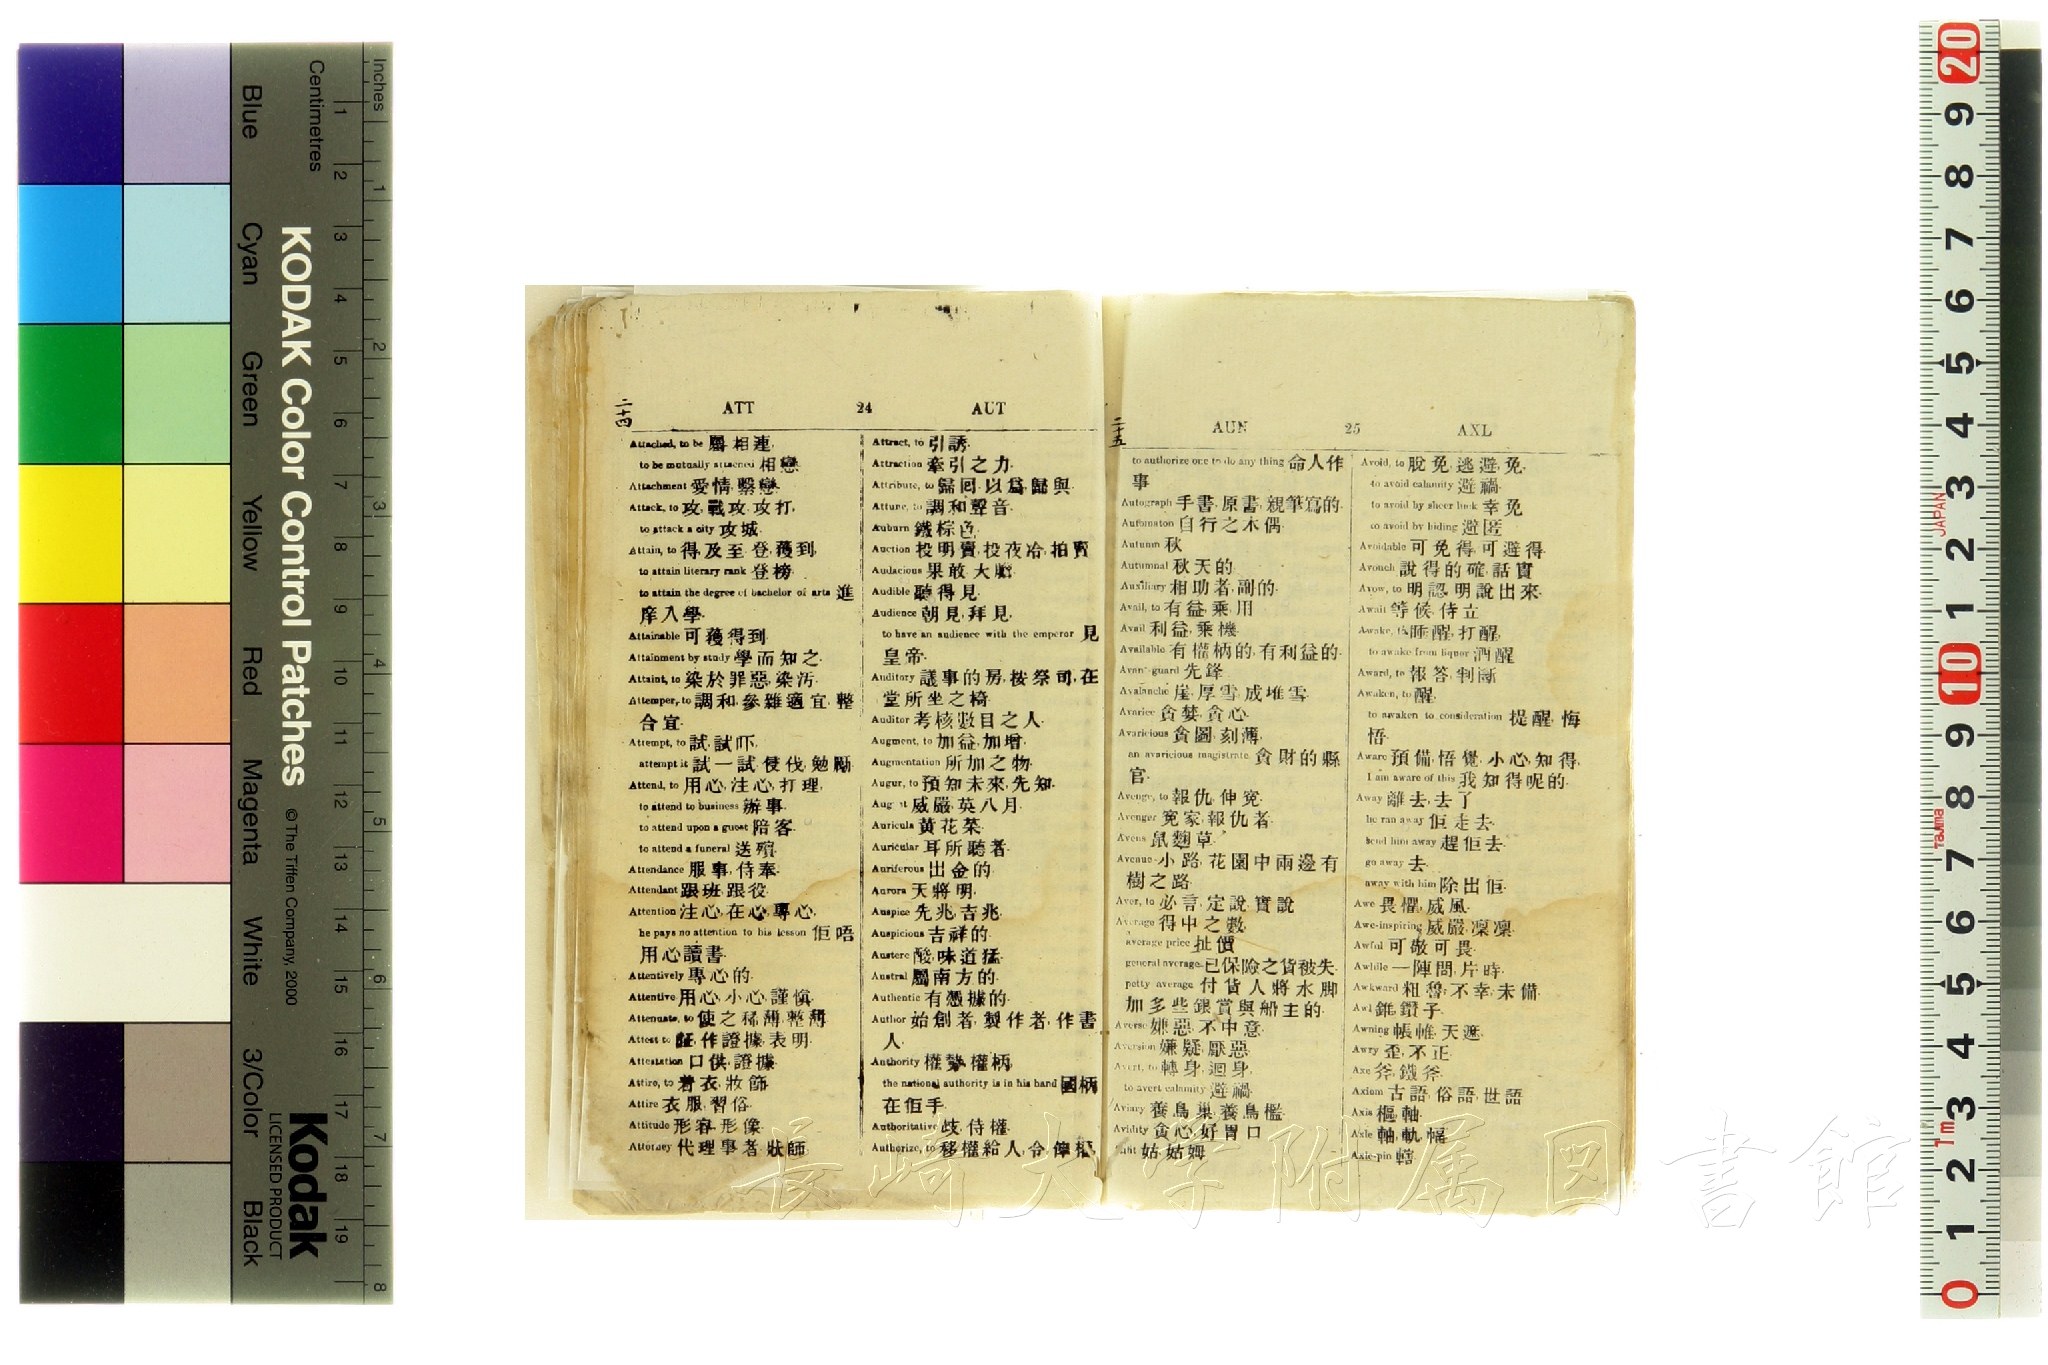 Inches
Centimetres
Blue
Cyan
Green
Yellow
Red
Magenta
White
3/Color
Black
KODAK Color Control Patches
© The Tiffen Company, 2000
Kodak
LICENSED PRODUCT
二十四
ATT 24 AUT
Attached, to be 屬, 相連,
to be mutually attached 相戀
Attachment 愛情, 繫戀
Attack, to 攻, 戰攻, 攻打,
to attack a city 攻城
Attain, to 得, 及至, 登, 獲到
to attain literary rank 登榜
to attain the degree of bachelor of arts 進
庠入學
Attainable 可獲得到
Attainment by study 學而知之
Attaint, to 染於罪惡, 染汚
Attemper, to 調和, 參雜適宜, 整
合宜
Attempt, to 試, 試吓,
attempt it 試一試, 侵伐, 勉勵
Attend, to 用心, 注心, 打理,
to attend to business 辦事
to attend upon a guest 陪客
to attend a funeral 送殯
Attendance 服事, 侍奉
Attendant 跟班, 跟役
Attention 注心, 在心, 專心,
he pays no attention to his lesson 佢唔
用心讀書
Attentively 專心的
Attentive 用心, 小心, 謹愼
Attenuate, to 使之稀薄, 整薄
Attest to 証, 作證據, 表明
Attestation 口供, 證據
Attire, to 着衣, 妝飾
Attire 衣服, 習俗
Attitude 形容, 形像
Attorney 代理事者, 狀師
Attract, to 引誘
Attraction 牽引之力
Attribute, to 歸回, 以爲, 歸與
Attune, to 調和聲音
Auburn 鐵棕色
Auction 投明賣, 投夜冷, 拍賣
Audacious 果敢, 大膽
Audible 聽得見
Audience 朝見, 拜見
to have an audience with the emperor 見
皇帝
Auditory 議事的房, 按察司, 在
堂所坐之椅
Auditor 考核數目之人
Augment, to 加益, 加增
Augmentation 所加之物
Augur, to 預知未來, 先知
August 威嚴, 英八月
Auricula 黃花菜
Auricular 耳所聽者
Auriferous 出金的
Aurora 天將明
Auspice 先兆, 吉兆
Auspicious 吉祥的
Austere 酸, 味道猛
Austral 屬南方的
Authentic 有憑據的
Author 始創者, 製作者, 作書
人
Authority 權勢, 權柄
the national authority is in his hand 國柄
在佢手
Authoritative 歧, 侍權
Authorize, to 移權給人, 令俾權,
二十五
AUN 25 AXL
to authorize one to do any thing 命人作
事
Autograph 手書, 原書, 親筆寫的
Automaton 自行之木偶
Autumn 秋
Autumnal 秋天的
Auxiliary 相助者, 副的
Avail, to 有益, 乘用
Avail 利益, 乘機
Available 有權柄的, 有利益的
Avant-guard 先鋒
Avalanche 崖, 厚雪, 成堆雪
Avarice 貪婪, 貪心
Avaricious 貪圖, 刻薄,
an avaricious magistrate 貪財的縣
官
Avenge, to 報仇, 伸寃
Avenger 寃家, 報仇者
Avens 鼠麴草
Avenue 小路, 花園中兩邊有
樹之路
Aver, to 必言, 定說, 實說
Average 得中之數
average price 扯價
general average 已保險之貨被失
petty average 付貨人將水脚
加多些銀賞與船主的
Averse 嫌惡, 不中意
Aversion 嫌疑, 厭惡
Avert, to 轉身, 迴身
to avert calamity 避禍
Aviary 養鳥巢, 養鳥檻
Avidity 貪心, 好胃口
姑, 姑姆
Avoid, to 脫免, 逃避, 免
to avoid calamity 避禍
to avoid by sheer luck 幸免
to avoid by hiding 避匿
Avoidable 可免得, 可避得
Avouch 說得的確, 話實
Avow, to 明認, 明說出來
Await 等候, 侍立
Awake, to 睡醒, 打醒
to awake from liquor 酒醒
Award, to 報答, 判斷
Awaken, to 醒
to awaken to consideration 提醒, 悔
悟
Aware 預備, 悟覺, 小心, 知得
I am aware of this 我知得呢的
Away 離去, 去了
he ran away 佢走去
send him away 趕佢去
go away 去
away with him 除出佢
Awe 畏懼, 威風
Awe-inspiring 威嚴, 凜凜
Awful 可敬可畏
Awhile 一陣間, 片時
Awkward 粗魯, 不幸, 未備
Awl 錐, 鑽子
Awning 帳帷, 天遮
Awry 歪, 不正
Axe 斧, 鐵斧
Axiom 古語, 俗語, 世語
Axis 樞, 軸
Axle 軸, 軌, 輻
Axle-pin 轄
長崎大学附属図書館
JAPAN
Tajima
1m